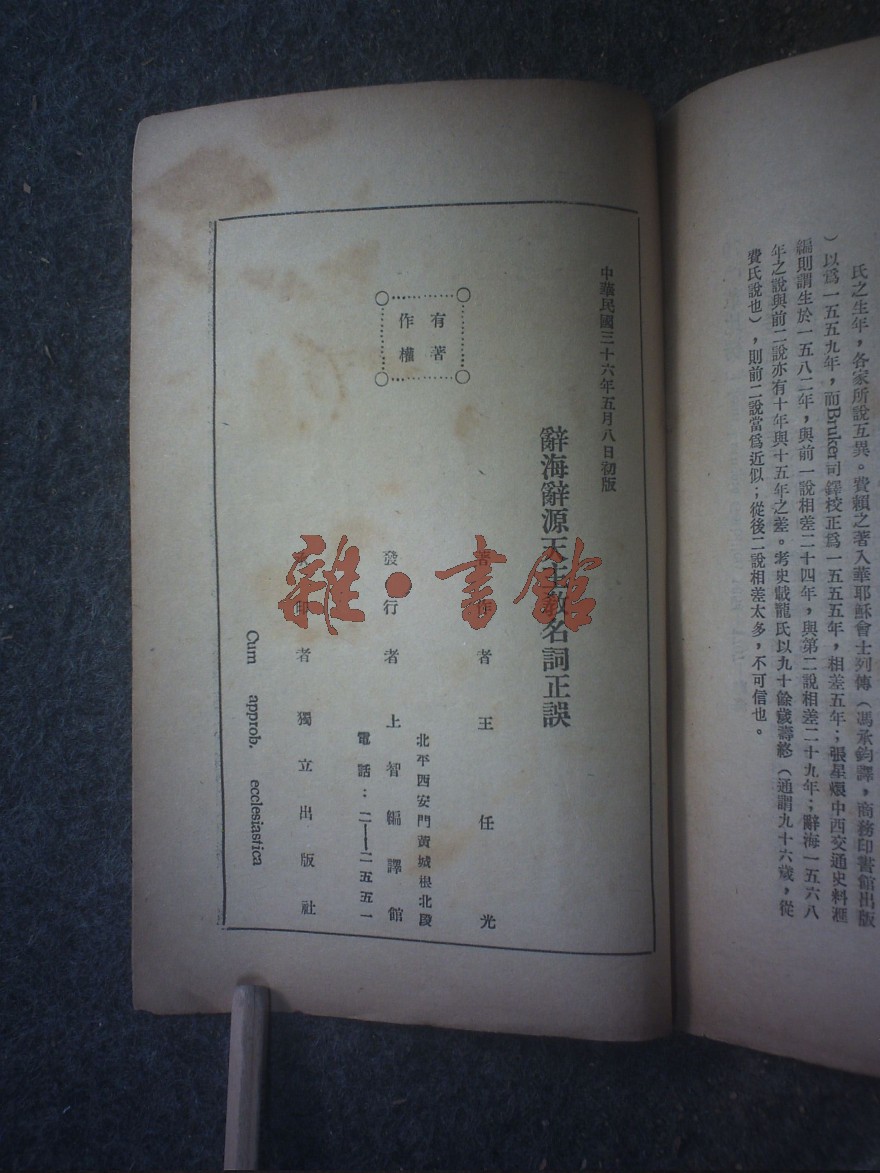 氏之生年，各家所說互異。費賴之著入華耶穌會士列傳（馮承鈞譯，商務印書館出版
）以爲一五五九年，而Bruker司鐸校正爲一五五五年，相差五年；張星烺中西交通史料滙
編則謂生於一五八二年，與前一說相差二十四年，與第二說相差二十九年；辭海一五六八
年之說與前二說亦有十年與十五年之差。考史載龍氏以九十餘歲壽終（通謂九十六歲，從
費氏說也），則前二說當爲近似；從後二說相差太多，不可信也。
中華民國三十六年五月八日初版
辭海辭源天主教名詞正誤
有著
作權
著作者王任光
北平西安門黄城根北段
發行者上智編譯館
電話：二—二五五一
印者獨立出版社
Cum approb. ecclesiastica
雜·書館